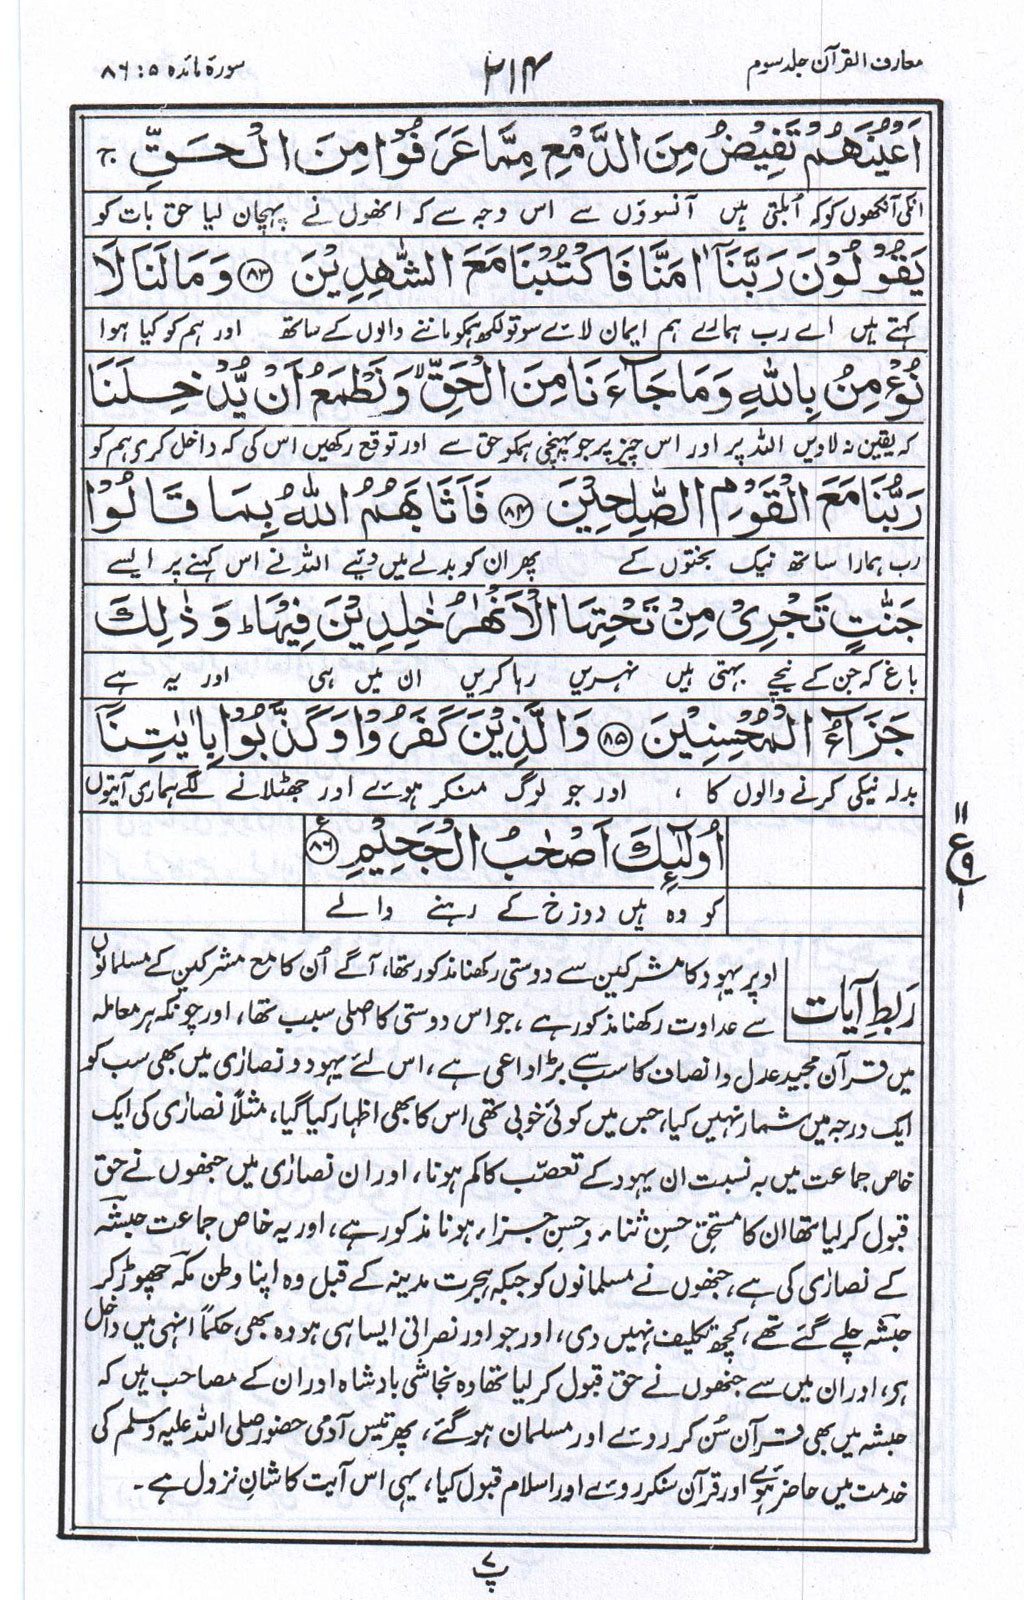 معارف القرآن جلد سوم
۲۱۴
سورۃ مائدہ ۵ : ۸۶
اَعْيُنَهُمْ تَفِيْضُ مِنَ الدَّمْعِ مِمَّا عَرَفُوْا مِنَ الْحَقِّ ۚ
انکی آنکھوں کو کہ اُبلتی ہیں آنسوؤں سے اس وجہ سے کہ انھوں نے پہچان لیا حق بات کو
يَقُوْلُوْنَ رَبَّنَآ اٰمَنَّا فَاكْتُبْنَا مَعَ الشّٰهِدِيْنَ ﴿۸۳﴾ وَمَا لَنَا لَا
کہتے ہیں اے رب ہمارے ہم ایمان لائے سو تو لکھ ہمکو ماننے والوں کے ساتھ اور ہم کو کیا ہوا
نُؤْمِنُ بِاللّٰهِ وَمَا جَآءَنَا مِنَ الْحَقِّ ۙ وَنَطْمَعُ اَنْ يُّدْخِلَنَا
کہ یقین نہ لاویں اللہ پر اور اس چیز پر جو پہنچی ہمکو حق سے اور توقع رکھیں اس کی کہ داخل کرے ہم کو
رَبُّنَا مَعَ الْقَوْمِ الصّٰلِحِيْنَ ﴿۸۴﴾ فَاَثَابَهُمُ اللّٰهُ بِمَا قَالُوْا
رب ہمارا ساتھ نیک بختوں کے پھر ان کو بدلے میں دیئے اللہ نے اس کہنے پر ایسے
جَنّٰتٍ تَجْرِيْ مِنْ تَحْتِهَا الْاَنْهٰرُ خٰلِدِيْنَ فِيْهَا ؕ وَذٰلِكَ
باغ کہ جن کے نیچے بہتی ہیں نہریں رہا کریں ان میں ہی اور یہ ہے
جَزَآءُ الْمُحْسِنِيْنَ ﴿۸۵﴾ وَالَّذِيْنَ كَفَرُوْا وَكَذَّبُوْا بِاٰيٰتِنَآ
بدلہ نیکی کرنے والوں کا ، اور جو لوگ منکر ہوئے اور جھٹلانے لگے ہماری آیتوں
اُولٰٓئِكَ اَصْحٰبُ الْجَحِيْمِ ﴿۸۶﴾ ع
۱۱
ع ۹
۱
کو وہ ہیں دوزخ کے رہنے والے
ربطِ آیات
اوپر یہود کا مشرکین سے دوستی رکھنا مذکور تھا، آگے اُن کا مع مشرکین کے مسلمانوں
سے عداوت رکھنا مذکور ہے ، جو اس دوستی کا اصلی سبب تھا، اور چونکہ ہر معاملہ
میں قرآن مجید عدل وانصاف کا سب سے بڑا داعی ہے، اس لئے یہود و نصاریٰ میں بھی سب کو
ایک درجہ میں شمار نہیں کیا، جس میں کوئی خوبی تھی اس کا بھی اظہار کیا گیا، مثلاً نصاریٰ کی ایک
خاص جماعت میں بہ نسبت ان یہود کے تعصّب کا کم ہونا، اور ان نصاریٰ میں جنھوں نے حق
قبول کر لیا تھا ان کا مستحقِ حسنِ ثناء و حسنِ جزاء ہونا مذکور ہے، اور یہ خاص جماعت حبشہ
کے نصاریٰ کی ہے، جنھوں نے مسلمانوں کو جبکہ ہجرتِ مدینہ کے قبل وہ اپنا وطن مکہ چھوڑ کر
حبشہ چلے گئے تھے، کچھ تکلیف نہیں دی، اور جو اور نصرانی ایسا ہی ہو وہ بھی حکماً انہی میں داخل
ہے، اور ان میں سے جنھوں نے حق قبول کر لیا تھا وہ نجاشی بادشاہ اور ان کے مصاحب ہیں کہ
حبشہ میں بھی قرآن سُن کر روئے اور مسلمان ہو گئے، پھر تیس آدمی حضور صلی اللہ علیہ وسلم کی
خدمت میں حاضر ہوئے اور قرآن سنکر روئے اور اسلام قبول کیا، یہی اس آیت کا شانِ نزول ہے۔
پ ۷